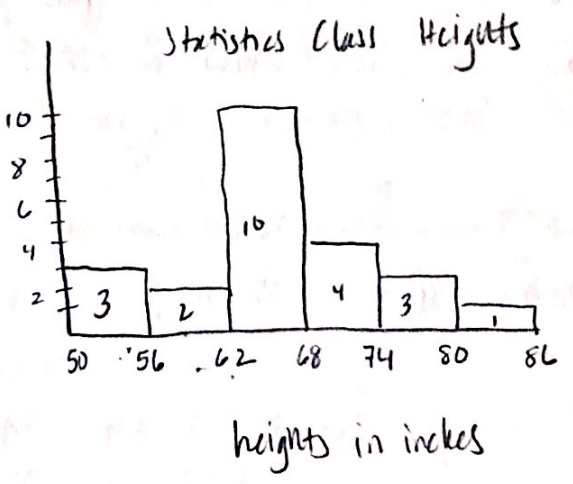 Statistics Class Heights
10
8
6
4
2
3
2
10
4
3
1
50 56 62 68 74 80 86
heights in inches